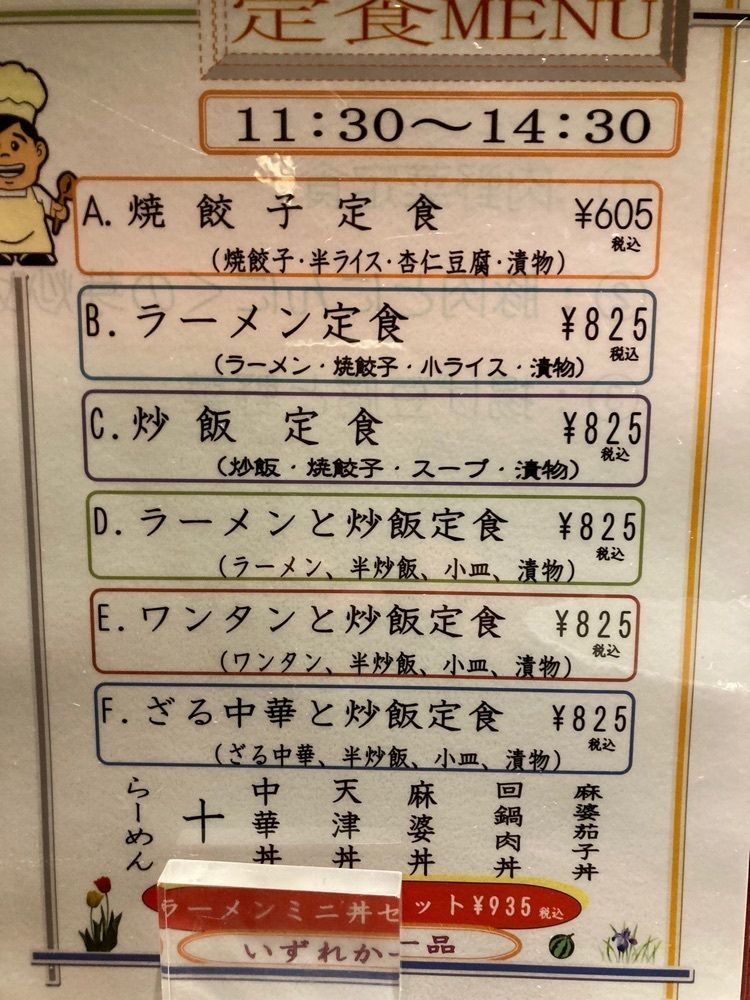 定食MENU
11:30～14:30
A. 焼餃子定食 ¥605
税込
(焼餃子・半ライス・杏仁豆腐・漬物)
B. ラーメン定食 ¥825
税込
(ラーメン・焼餃子・小ライス・漬物)
C. 炒飯定食 ¥825
税込
(炒飯・焼餃子・スープ・漬物)
D. ラーメンと炒飯定食 ¥825
税込
(ラーメン、半炒飯、小皿、漬物)
E. ワンタンと炒飯定食 ¥825
税込
(ワンタン、半炒飯、小皿、漬物)
F. ざる中華と炒飯定食 ¥825
税込
(ざる中華、半炒飯、小皿、漬物)
らーめん
十
中華丼
天津丼
麻婆丼
回鍋肉丼
麻婆茄子丼
ラーメンミニ丼セット¥935 税込
いずれか一品